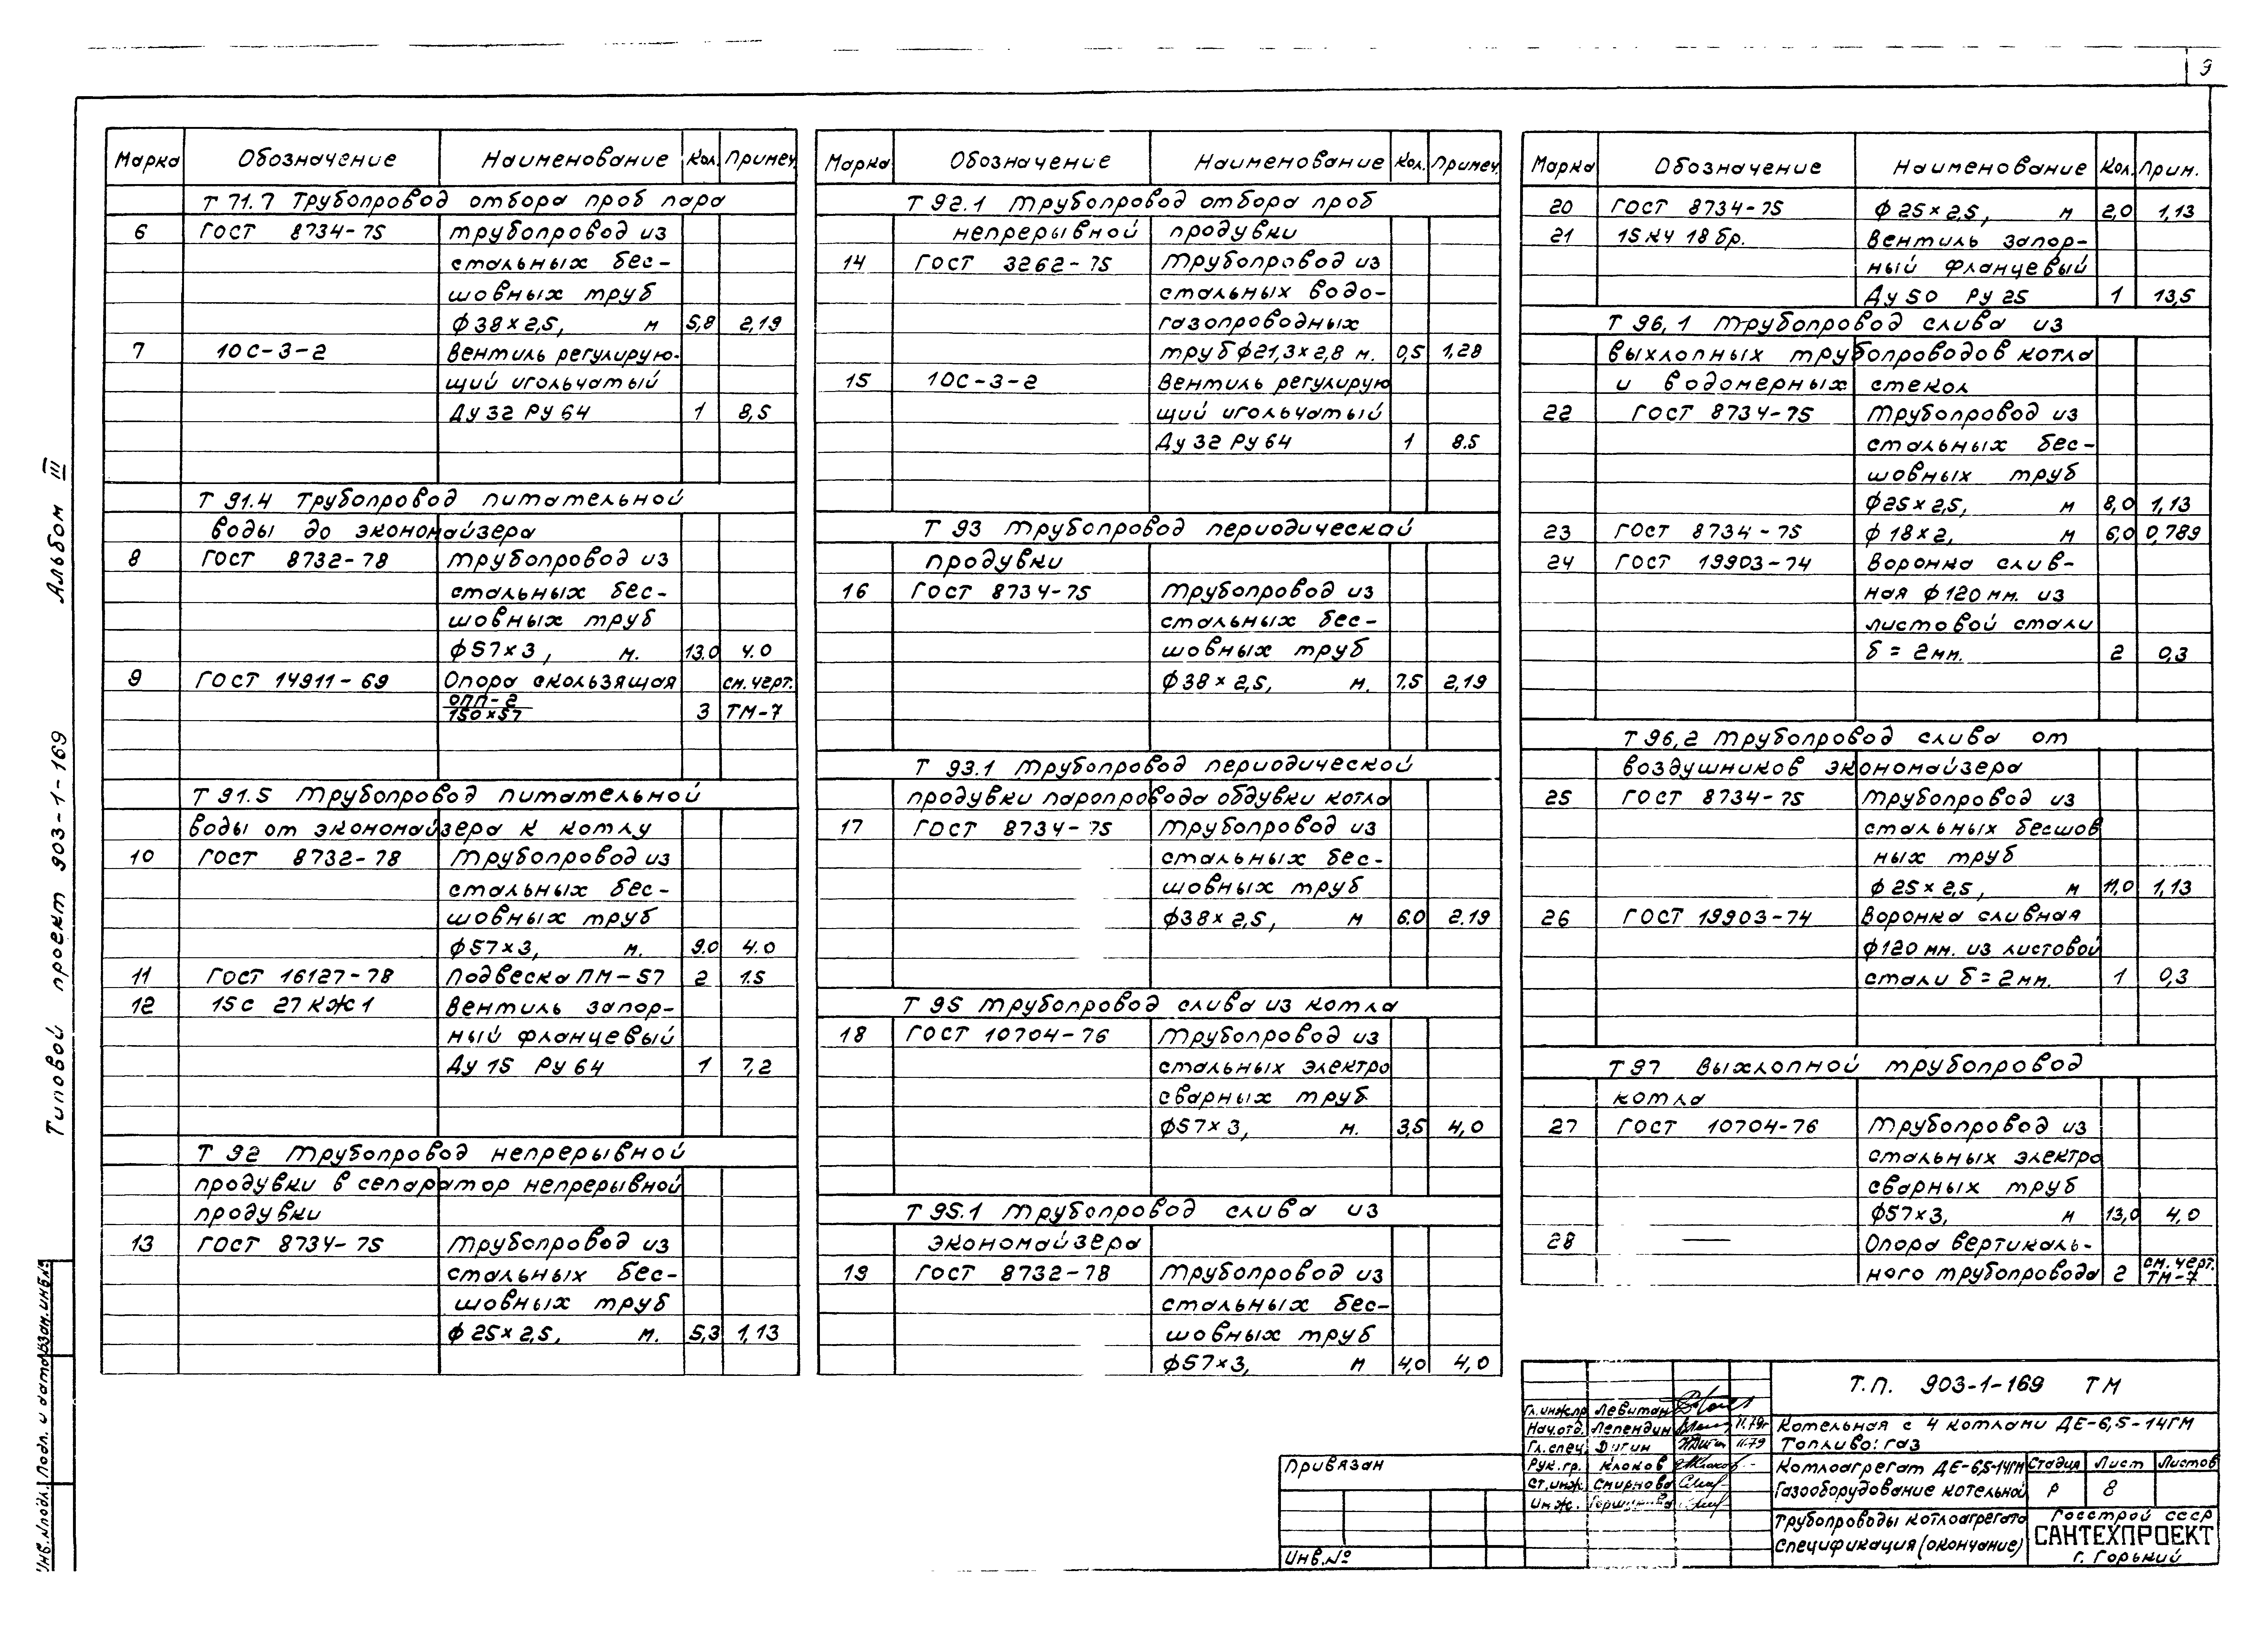 9
Марка Обозначение Наименование Кол. Примеч.
Т 71.7 Трубопровод отбора проб пара
6 ГОСТ 8734-75 Трубопровод из
стальных бес-
шовных труб
ф 38×2,5, м 5,8 2,19
7 10с-3-2 Вентиль регулирую-
щий игольчатый
Ду 32 Ру 64 1 8,5
Т 91.4 Трубопровод питательной
воды до экономайзера
8 ГОСТ 8732-78 Трубопровод из
стальных бес-
шовных труб
ф 57×3, м. 13.0 4.0
9 ГОСТ 14911-69 Опора скользящая см. черт.
ОПП-2
150×57 3 ТМ-7
Т 91.5 Трубопровод питательной
воды от экономайзера к котлу
10 ГОСТ 8732-78 Трубопровод из
стальных бес-
шовных труб
ф57×3, м. 9.0 4.0
11 ГОСТ 16127-78 Подвеска ПМ-57 2 1.5
12 15с 27 КЖ1 Вентиль запор-
ный фланцевый
Ду 15 Ру 64 1 7,2
Т 92 Трубопровод непрерывной
продувки в сепаратор непрерывной
продувки
13 ГОСТ 8734-75 Трубопровод из
стальных бес-
шовных труб
ф 25×2,5, м. 5,3 1,13
Марка Обозначение Наименование Кол. Примеч.
Т 92.1 Трубопровод отбора проб
непрерывной продувки
14 ГОСТ 3262-75 Трубопровод из
стальных водо-
газопроводных
труб ф21,3×2,8 м. 0,5 1,28
15 10с-3-2 Вентиль регулирую
щий игольчатый
Ду 32 Ру 64 1 8.5
Т 93 Трубопровод периодической
продувки
16 ГОСТ 8734-75 Трубопровод из
стальных бес-
шовных труб
ф38×2,5, м. 7,5 2,19
Т 93.1 Трубопровод периодической
продувки паропровода обдувки котла
17 ГОСТ 8734-75 Трубопровод из
стальных бес-
шовных труб
ф38×2,5, м 6.0 2.19
Т 95 Трубопровод слива из котла
18 ГОСТ 10704-76 Трубопровод из
стальных электро
сварных труб
ф57×3, м. 3,5 4,0
Т 95.1 Трубопровод слива из
экономайзера
19 ГОСТ 8732-78 Трубопровод из
стальных бес-
шовных труб
ф57×3, м 4,0 4,0
Марка Обозначение Наименование Кол. Прим.
20 ГОСТ 8734-75 ф 25×2,5, м 2,0 1,13
21 15кч 18 бр. Вентиль запор-
ный фланцевый
Ду 50 Ру 25 1 13,5
Т 96,1 Трубопровод слива из
выхлопных трубопроводов котла
и водомерных стекол
22 ГОСТ 8734-75 Трубопровод из
стальных бес-
шовных труб
ф25×2,5, м 8,0 1,13
23 ГОСТ 8734-75 ф 18×2, м 6,0 0,789
24 ГОСТ 19903-74 Воронка слив-
ная ф 120 мм. из
листовой стали
δ = 2 мм. 2 0,3
Т 96,2 Трубопровод слива от
воздушников экономайзера
25 ГОСТ 8734-75 Трубопровод из
стальных бесшов
ных труб
ф 25×2,5, м 11,0 1,13
26 ГОСТ 19903-74 Воронка сливная
ф120 мм. из листовой
стали δ = 2 мм. 1 0,3
Т 97 Выхлопной трубопровод
котла
27 ГОСТ 10704-76 Трубопровод из
стальных электро
сварных труб
ф57×3, м 13,0 4,0
28 — Опора вертикаль-
ного трубопровода 2 см. черт. ТМ-7
Типовой проект 903-1-169 Альбом III
Инв.№подл. Подп. и дата Взам.инв.№
Привязан
Инв.№
Гл.инж.пр. Левитан
Нач.отд. Лепендин 11.79г
Гл.спец. Дигин 11.79
Рук.гр. Клоков
Ст.инж. Смирнова
Инж.
Т.П. 903-1-169 ТМ
Котельная с 4 котлами ДЕ-6,5-14ГМ
Топливо: газ
Котлоагрегат ДЕ-6,5-14ГМ
Газооборудование котельной
Стадия Лист Листов
Р 8
Трубопроводы котлоагрегата
Спецификация (окончание)
Госстрой СССР
САНТЕХПРОЕКТ
г. Горький